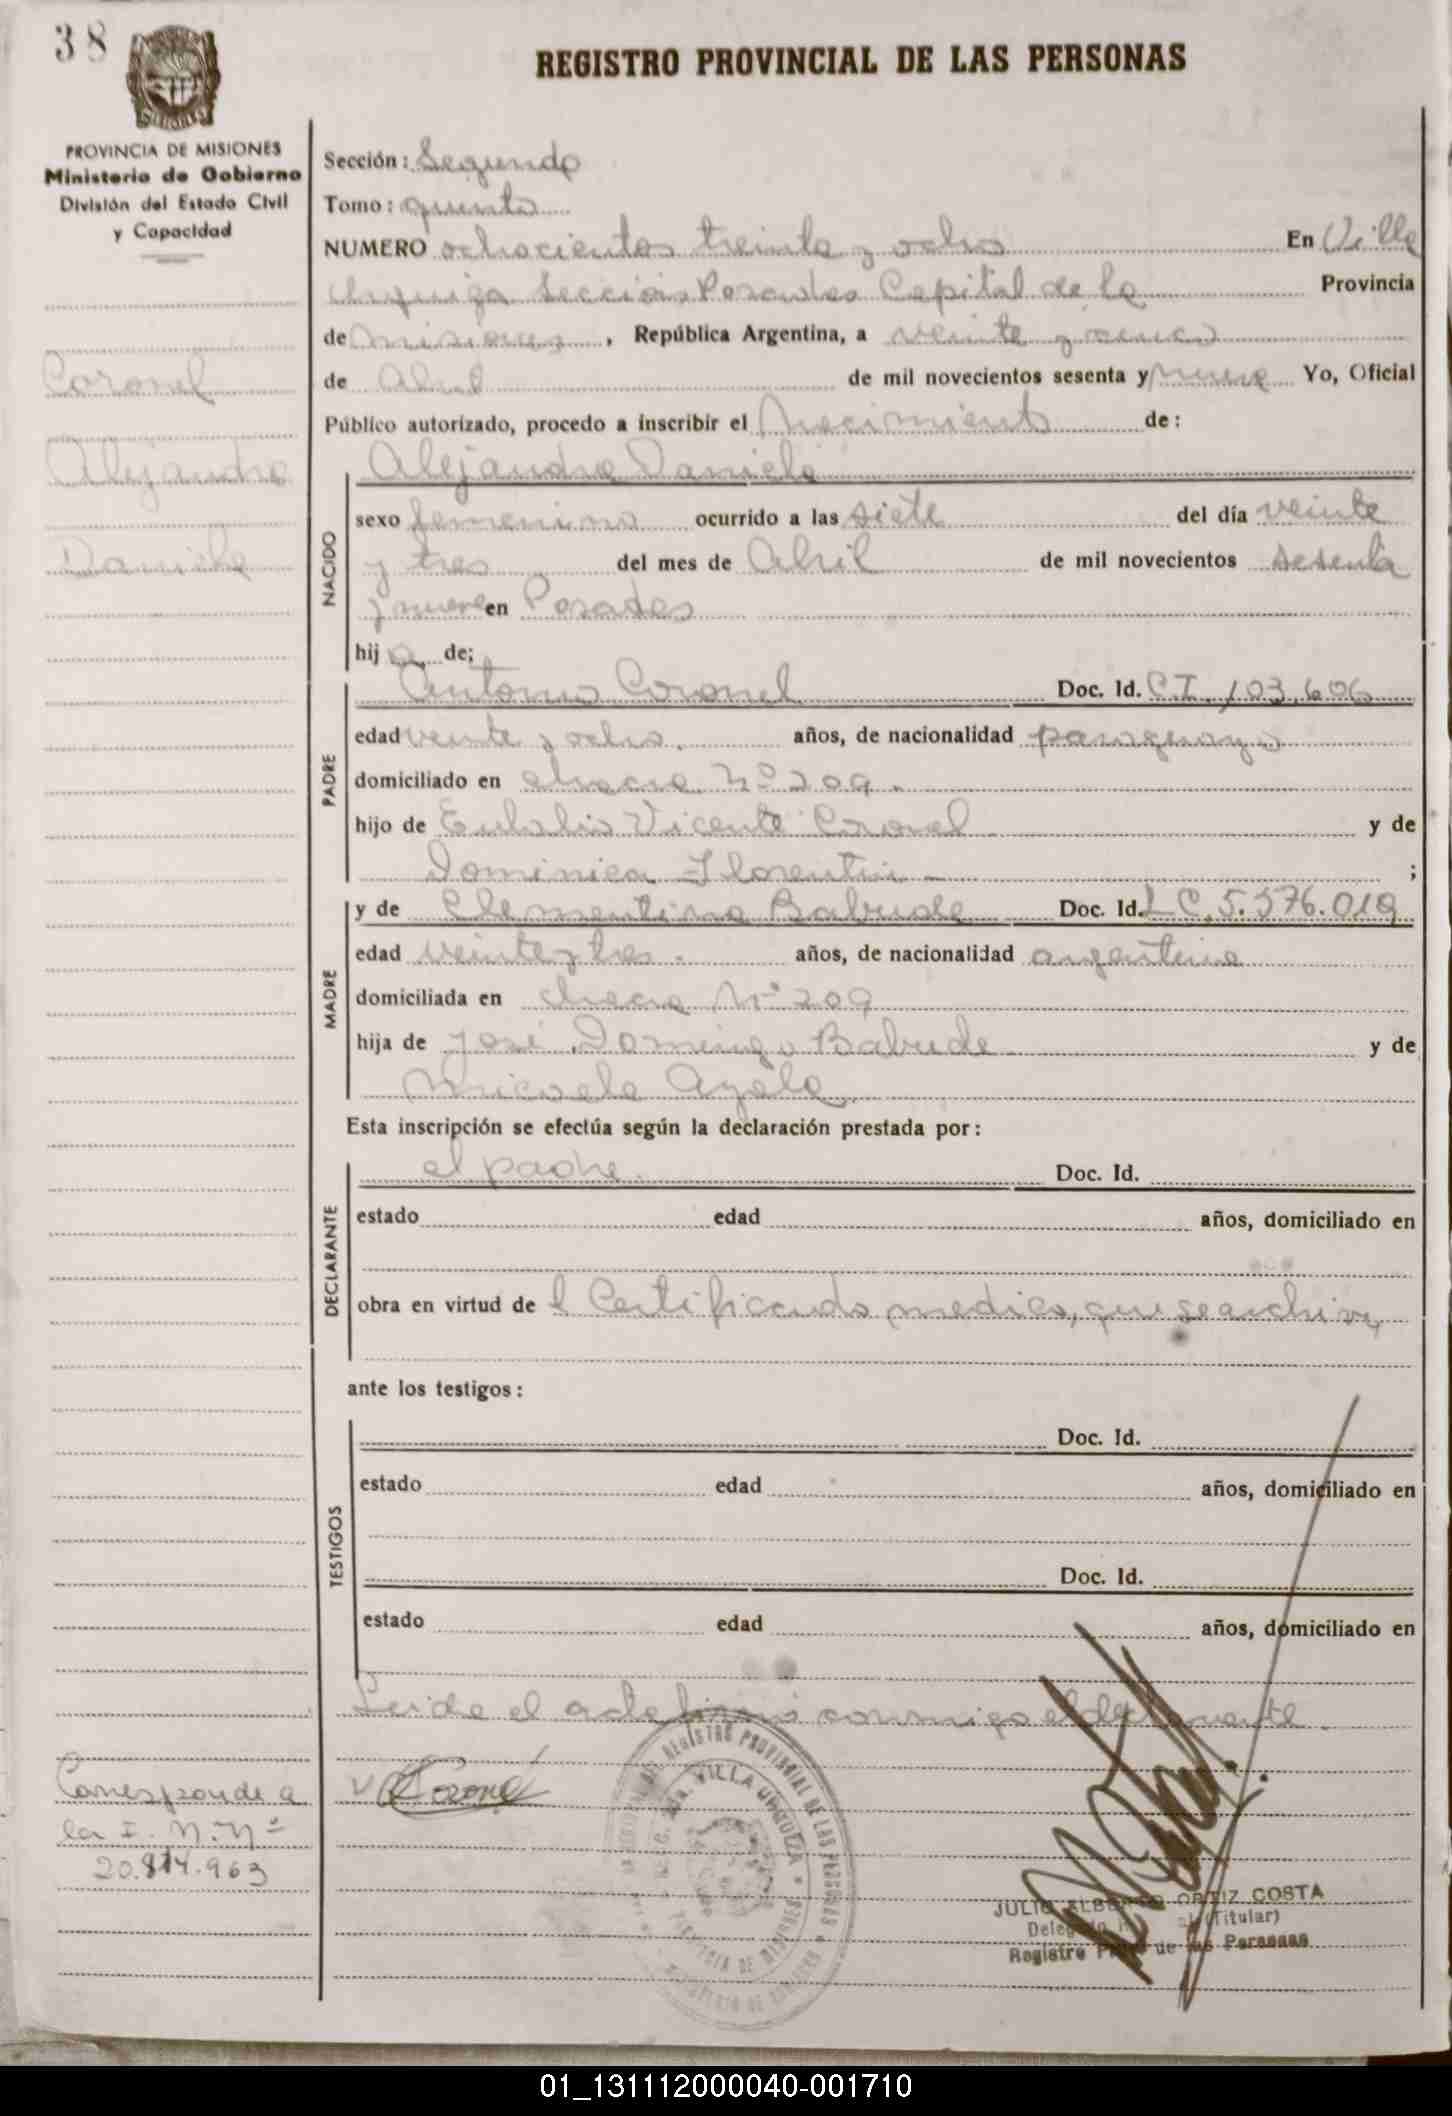 38
REGISTRO PROVINCIAL DE LAS PERSONAS
PROVINCIA DE MISIONES
Ministerio de Gobierno
División del Estado Civil
y Capacidad
Coronel
Alejandra
Daniela
Sección: Segunda
Tomo: quinto
NUMERO ochocientos treinta y ocho En Villa
Urquiza Sección Posadas Capital de la Provincia
de Misiones, República Argentina, a veinte y cinco
de Abril de mil novecientos sesenta y nueve Yo, Oficial
Público autorizado, procedo a inscribir el Nacimiento de:
Alejandra Daniela
NACIDO
sexo femenino ocurrido a las siete del día veinte
y tres del mes de Abril de mil novecientos sesenta
y nueve en Posadas
hija de;
PADRE
Antonio Coronel Doc. Id. C.I. 103.606
edad veinte y ocho. años, de nacionalidad paraguayo
domiciliado en chacra Nº 209.
hijo de Eulalio Vicente Coronel y de
Dominica Florentin - ;
MADRE
y de Clementina Babude Doc. Id. LC. 5.576.019
edad veinte y tres. años, de nacionalidad argentina
domiciliada en chacra Nº 209
hija de José Domingo Babude y de
Micaela Ayala.
Esta inscripción se efectúa según la declaración prestada por:
DECLARANTE
el padre. Doc. Id.
estado edad años, domiciliado en
obra en virtud de l Certificado medico, que se archiva
ante los testigos:
TESTIGOS
Doc. Id.
estado edad años, domiciliado en
Doc. Id.
estado edad años, domiciliado en
Leida el acta firmó conmigo el declarante.
Corresponde a
la I. N. Nº
20.814.963
Coronel
REGISTRO PROVINCIAL DE LAS PERSONAS
VILLA URQUIZA
PROVINCIA DE MISIONES
JULIO ALBERTO ORTIZ COSTA
(Titular)
Registro Prov. de las Personas
01_131112000040-001710